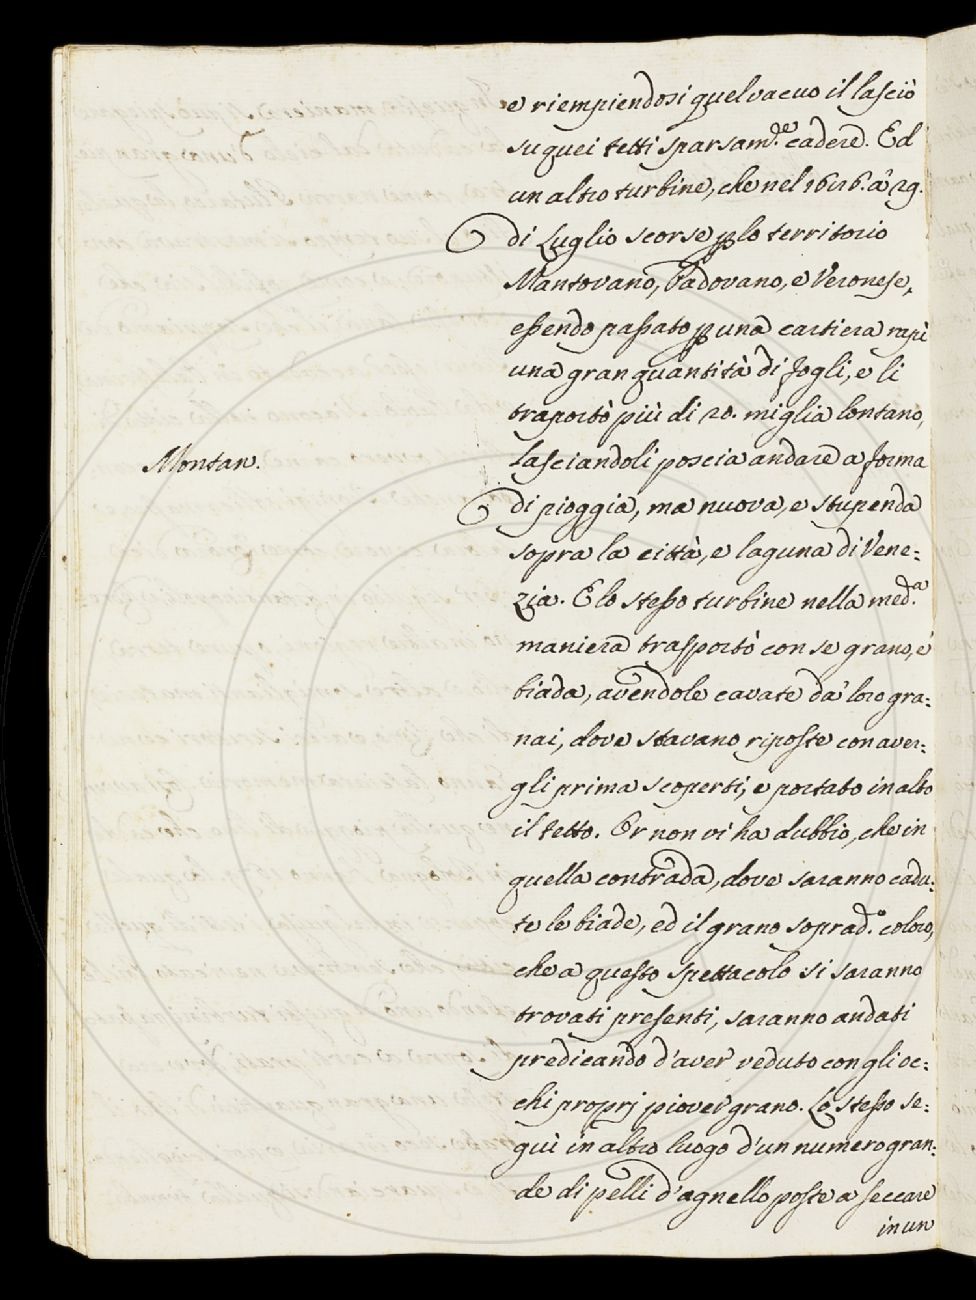 e riempiendosi quel vacuo il lasciò
su quei tetti sparsam.te cadere. Ed
un altro turbine, che nel 1616. a' 29.
di Luglio scorse p lo territorio
Mantovano, Padovano, e Veronese,
essendo passato p una cartiera rapì
una gran quantità di fogli, e li
traportò più di 20. miglia lontano,
Montan.
lasciandoli poscia andare a forma
di pioggia, ma nuova, e stupenda
sopra la città, e laguna di Vene:
zia. E lo stesso turbine nella med.a
maniera trasportò con se grano, e
biada, avendole cavate da' loro gra:
nai, dove stavano riposte con aver:
gli prima scoperti, e portato in alto
il tetto. Or non vi ha dubbio, che in
quella contrada, dove saranno cadu:
te le biade, ed il grano soprad.o coloro,
che a questo spettacolo si saranno
trovati presenti, saranno andati
predicando d'aver veduto con gli oc:
chi proprj piover grano. Lo stesso se:
guì in altro luogo d'un numero gran:
de di pelli d'agnello poste a seccare
in un